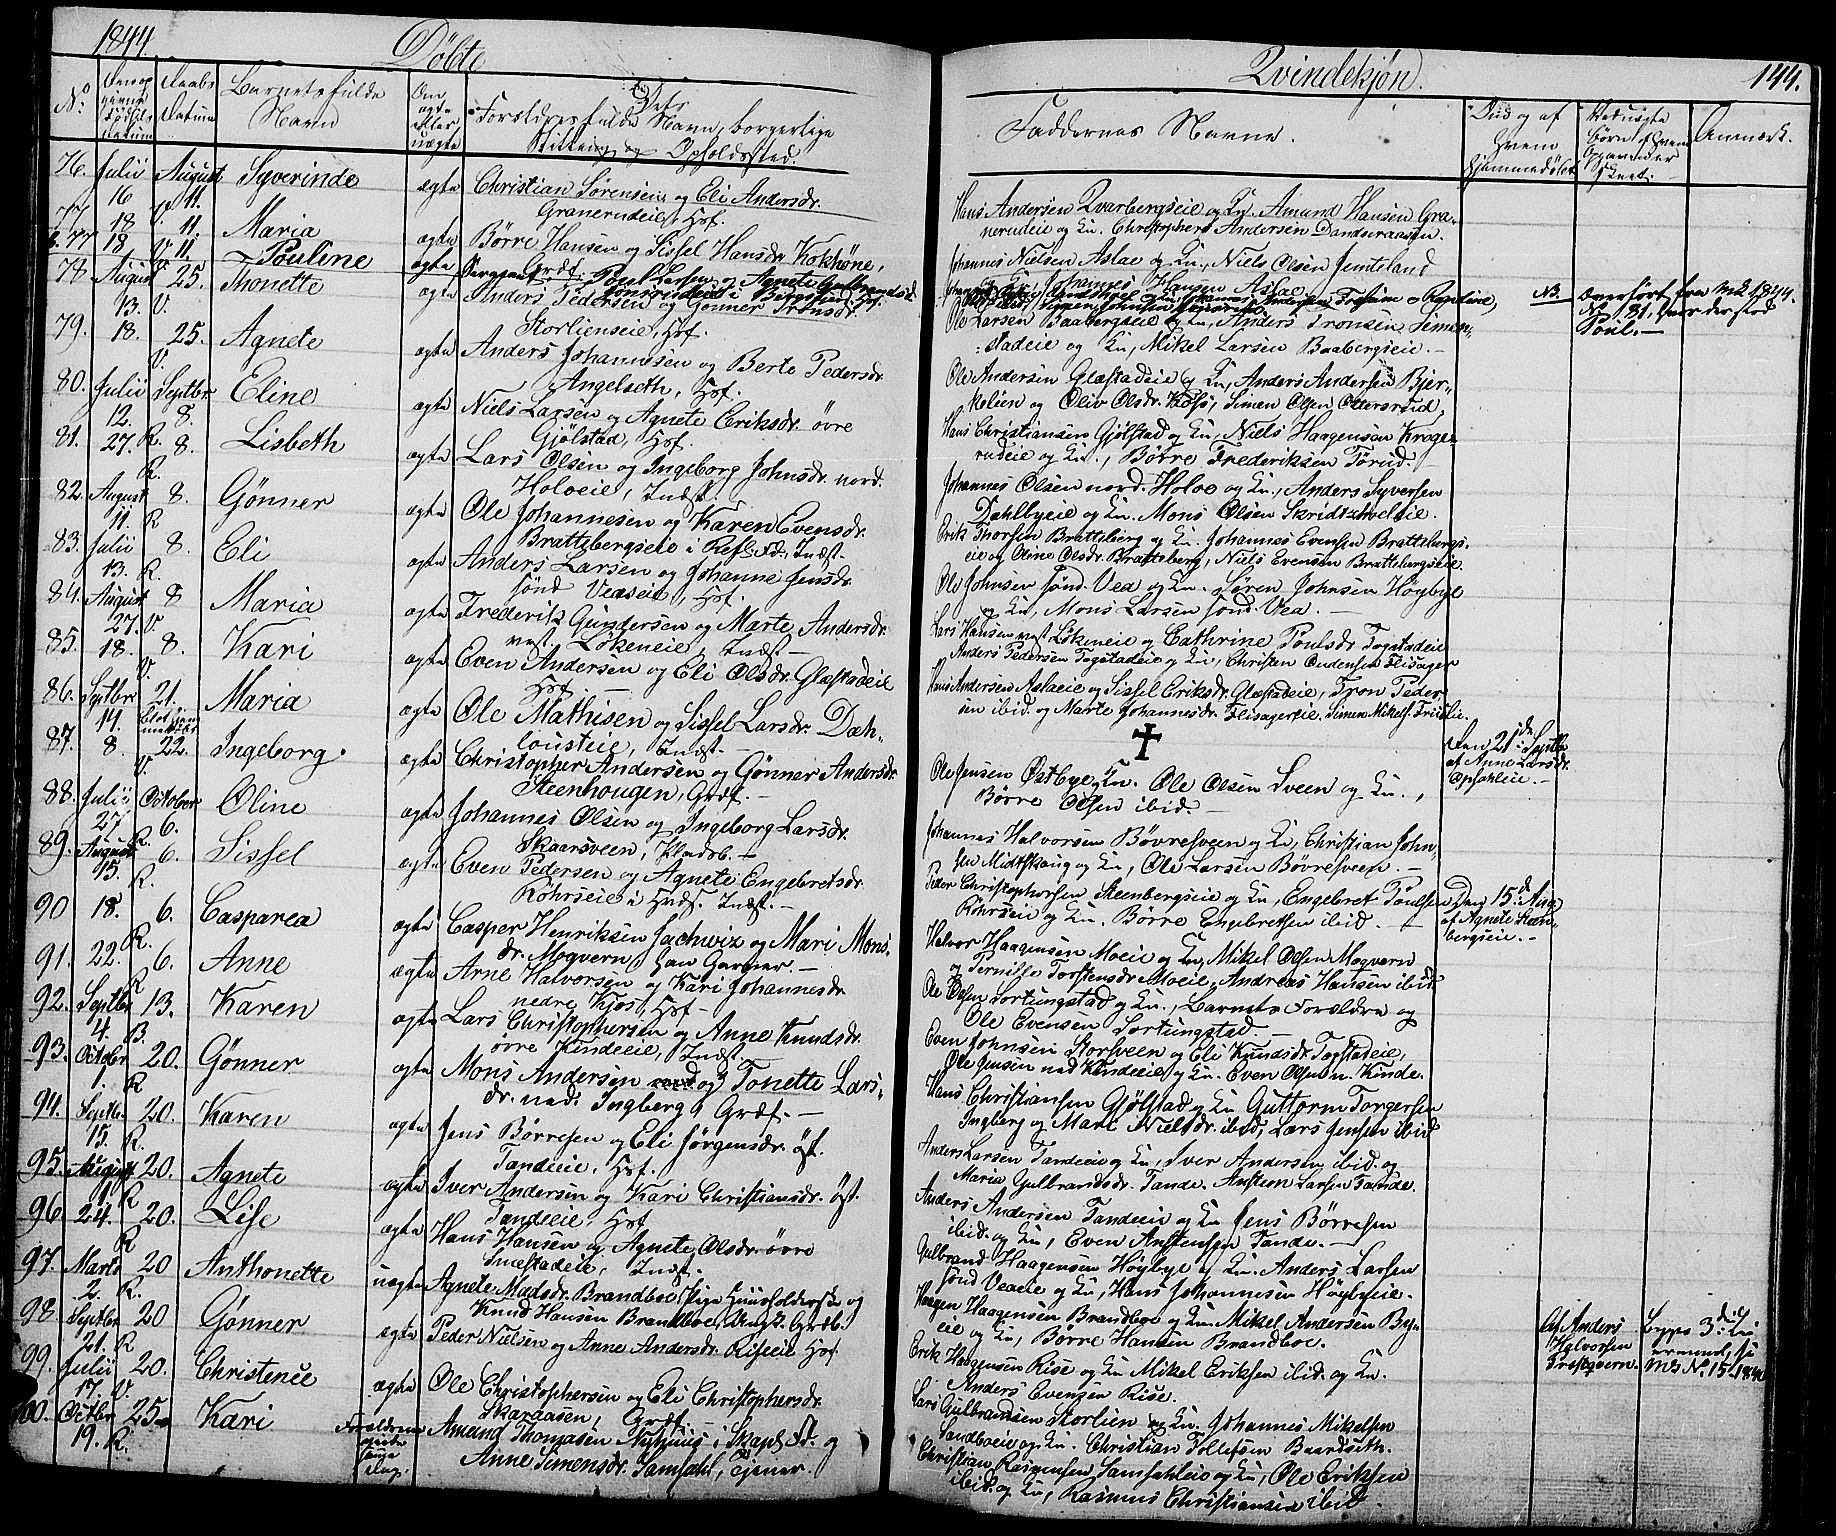 1844.
Döbte
Qvindekjön.
144.
No.
Barnets fulde
Navn
Dets
Forældres fulde Navn, borgerlige
Stilling og Opholdssted.
Faddernes Navne.
Anmærk.
76. Julii August Syverinde ægte Christian Sörensen og Eli Andersdr.
16 11. Granerudeie, Hsf.
Hans Andersen Qvarbergseie og Kn. Amund Hansen Gra-
nerudeie og Kn. Christopher Andersen
77 18 V. 11. Maria ægte Börre Hansen og Sissel Hansdr. Kokhöne,
Johannes Nielsen Aslae og Kn., Niels Olsen Jemteland
77 18 V. 11. Pouline ægte
Johannes Hansen Aslae
78 August 25. Thonette ægte Anders Pedersen og Gönner Tronsdr.
13. V. Storlienseie, Hsf.
Ole Larsen Baabergseie og Kn., Anders Tronsen Simen-
stadeie og Kn, Mikel Larsen Baabergseie.
NB. overfört fra M2 1844.
No. 81. hvor der stod
Poul.
79. 18. 25. Agnete ægte Anders Johannesen og Berte Pedersdr.
V. Angelseth, Hsf.
Ole Andersen Glæstadeie og Kn, Anders Andersen Bjer-
kelien og Oliv Olsdr. Kass, Simen Olsen Ottersrud,
80. Julii Septbr Eline ægte Niels Larsen og Agnete Eriksdr. övre
12. 8. Gjölstad, Hsf.
Hans Christiansen Gjölstad og Kn, Niels Haagensen Krage-
rudeie og Kn., Börre Frederiksen Törud.
81. 27. R. 8. Lisbeth ægte Lars Olsen og Ingeborg Johnsdr. nord.
R. Holoeie, Indst.
Johannes Olsen nord. Holoe og Kn., Anders Syversen
Dahlbyeie og Kn. Mons Olsen
82. August 8. Gönner ægte Ole Johannesen og Karen Evensdr.
11. R Brattebergseie i Refl. Fd., Indst.
Erik Thorsen Bratteberg og Kn. Johannes Evensen Brattebergs-
eie og Oline Olsdr. Bratteberg, Niels Evensen Brattebergseie
83. Julii 8. Eli ægte Anders Larsen og Johanne Jensdr.
13. R. sönd Veaseie, Hsf.
Ole Johnsen sönd. Vea og Kn. Sören Johnsen Höybye
og Kn, Mons Larsen sönd. Vea.
84. August 8 Maria ægte Frederik Gundersen og Marte Andersdr.
27. V. vest Lökeneie, Indst
Lars Hansen vest Lökeneie og Cathrine Poulsdr. Togstadeie
Anders Pedersen Togstadeie og Kn, Christen Flisager
85. 18. 8. Kari ægte Even Andersen og Eli Olsdr. Glæstadeie
V. Hsf
Hans Andersen Aslaeie og Sissel Eriksdr. Glæstadeie, Tron Peder-
sen ibid. og Marte Johannesdr. Flisagereie. Simen Mikels.
86. Septbr 21. Maria ægte Ole Mathisen og Sissel Larsdr. Dæh-
14. lousteie, Indst.
Den 21de Septbr
af Anne Larsdr.
Opsahleie.
87. 8. 22. Ingeborg. ægte Christopher Andersen og Gönner Andersdr.
V. Steenhougen, Græf.
Ole Jensen Östbye, Kn. Ole Olsen Sveen og Kn.,
Börre Olsen ibid.
88. Julii October Oline ægte Johannes Olsen og Ingeborg Larsdr.
27 6. Skaarsveen,
Johannes Halvorsen Börresveen og Kn, Christian John-
sen Midtskaug og Kn, Ole Larsen Börresveen.
89. August R. 6. Sissel ægte Even Pedersen og Agnete Engebretsdr.
15. R. Röhrseie i Indst.
Peder Christophersen Steenbergseie og Kn, Engebret Poulsen
Röhrseie og Kn. Börre Engebretsen ibid.
Den 15de Aug
af Agnete Steen-
bergseie.
90 18. 6. Casparea ægte Casper Henriksen Jachwiz og Mari Mons-
R. dr. Mogvern, Garver.
Halvor Haagensen Moeie og Kn, Mikel Olsen Mogvern
og Pernille Torstensdr. Moeie, Andreas Hansen ibid.
91. 22. 6. Anne ægte Arne Halvorsen og Kari Johannesdr
R nedre Kjos, Hsf
Ole Olsen Sortungstad og Kn., Barnets Forældre og
Ole Evensen Sortungstad.
92. Septbr 13. Karen ægte Lars Christophersen og Anne Knudsdr.
4. B. övre Kindeeie, Indst.
Even Johnsen Storsveen og Eli Knudsdr. Togstadeie,
Ole Jensen ned Kindeeie og Kn. Even Olsen Kinde.
93. Octobr 20. Gönner ægte Mons Andersen og Tonette Lars-
1. R dr. ned. Ingberg, Græf.
Hans Christiansen Gjölstad og Kn Guttorm Torgersen
Ingberg og Mari Nielsdr. ibid, Lars Jensen ibid
94. Septbr 20. Karen ægte Jens Börresen og Eli Jörgensdr. öst.
15. R. Tandeeie, Hsf.
Anders Larsen Tandeeie og Kn, Iver Andersen ibid. og
Maria Gulbrandsdr. Tande. Ansteen Larsen Tande.
95. August 20. Agnete ægte Iver Andersen og Kari Christiansdr. öst.
1. R Tandeeie, Hsf
Anders Andersen Tandeeie og Kn Jens Börresen
ibid. og Kn, Even Anstensen Tande.
96 24. 20. Lise ægte Hans Hansen og Agnete Olsdr. övre
R Snæstadeie, Indst.
Gulbrand Haagensen Höybye og Kn. Anders Larsen
sönd Veaeie og Kn, Hans Johannesen Höybyeie.
97. Marts 20 Anthonette uægte Agnete Madsdr. Brandboe Pige Huusholderske og
2. R. Knud Hansen Brandboe, Ungk.
Haagen Haagensen Brandboe og Kn. Mikel Andersen Bye-
eie og Kn, Börre Hansen Brandboe.
Af Anders
Halvorsen
98. Septbr 20 Gönner ægte Peder Nielsen og Anne Andersdr. Riseeie Hsf.
21. R
Erik Haagensen Rise og Kn Mikel Eriksen ibid. og Kn.
Anders Evensen Rise.
99. Julii 20. Christence ægte Ole Christophersen og Eli Christophersdr.
17. V. Skaraasen, Græf.
Lars Gulbrandsen Storlien og Kn. Johannes Mikelsen
Sandboeie og Kn. Christian Tollefsen Baardseth.
100. Octbr 25 Kari Amund Thomasen Nyhuus i Skapl. Fd. og
19. R. Anne Simensdr. Samsahl, Tjener.
Christian Rasmusen Samsahleie og Kn, Ole Eriksen
ibid. og Kn, Rasmus Christiansen ibid.